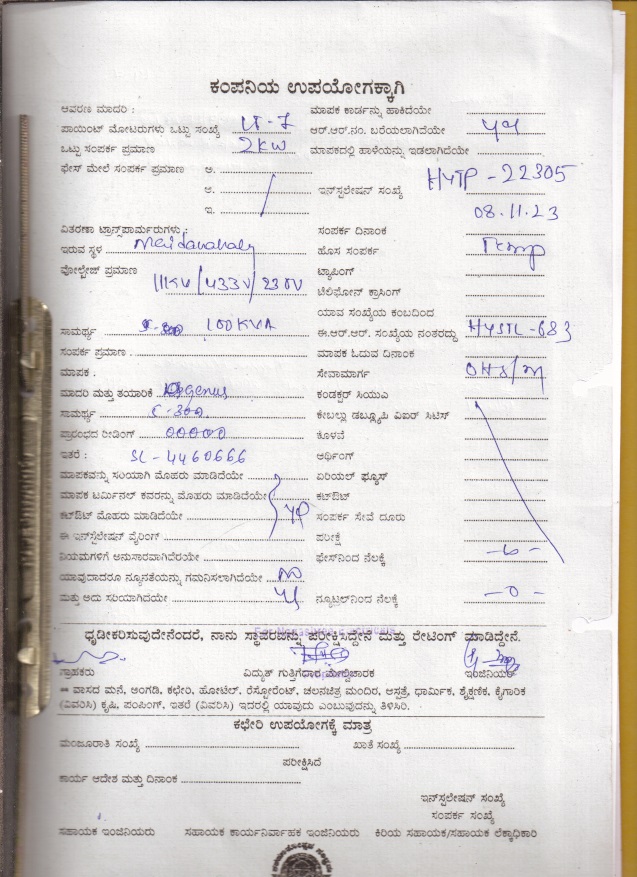 ಕಂಪನಿಯ ಉಪಯೋಗಕ್ಕಾಗಿ
ಆವರಣ ಮಾದರಿ : ಮಾಪಕ ಕಾರ್ಡನ್ನು ಹಾಕಿದೆಯೇ
ಪಾಯಿಂಟ್ ಮೋಟರುಗಳು ಒಟ್ಟು ಸಂಖ್ಯೆ LT-7 ಆರ್.ಆರ್.ನಂ. ಬರೆಯಲಾಗಿದೆಯೇ
ಒಟ್ಟು ಸಂಪರ್ಕ ಪ್ರಮಾಣ 2KW ಮಾಪಕದಲ್ಲಿ ಹಾಳೆಯನ್ನು ಇಡಲಾಗಿದೆಯೇ
ಫೇಸ್ ಮೇಲೆ ಸಂಪರ್ಕ ಪ್ರಮಾಣ ಅ.
ಆ. ಇನ್‌ಸ್ಟಲೇಷನ್ ಸಂಖ್ಯೆ HYTP-22305
ಇ. 08.11.23
ವಿತರಣಾ ಟ್ರಾನ್ಸ್‌ಪಾರ್ಮರುಗಳು : ಸಂಪರ್ಕ ದಿನಾಂಕ
ಇರುವ ಸ್ಥಳ ಹೊಸ ಸಂಪರ್ಕ Temp
ವೋಲ್ಟೇಜ್ ಪ್ರಮಾಣ 11KV/433V/230V ಟ್ಯಾಪಿಂಗ್
ಟೆಲಿಫೋನ್ ಕ್ರಾಸಿಂಗ್
ಯಾವ ಸಂಖ್ಯೆಯ ಕಂಬದಿಂದ
ಸಾಮರ್ಥ್ಯ 100KVA ಈ.ಆರ್.ಆರ್. ಸಂಖ್ಯೆಯ ನಂತರದ್ದು HYSTL-683
ಸಂಪರ್ಕ ಪ್ರಮಾಣ . ಮಾಪಕ ಓದುವ ದಿನಾಂಕ
ಮಾಪಕ . ಸೇವಾಮಾರ್ಗ
ಮಾದರಿ ಮತ್ತು ತಯಾರಿಕೆ genus ಕಂಡಕ್ಟರ್ ಸಿಯುಎ
ಸಾಮರ್ಥ್ಯ 5-30A ಕೇಬಲ್ಲು ಡಬ್ಲ್ಯೂಪಿ ವಿಐರ್ ಸಿಟಿಸ್
ಪ್ರಾರಂಭದ ರೀಡಿಂಗ್ 00000 ಕೊಳವೆ
ಇತರೆ : SL-4460666 ಅರ್ಥಿಂಗ್
ಮಾಪಕವನ್ನು ಸರಿಯಾಗಿ ಮೊಹರು ಮಾಡಿದೆಯೇ ಏರಿಯಲ್ ಫ್ಯೂಸ್
ಮಾಪಕ ಟರ್ಮಿನಲ್ ಕವರನ್ನು ಮೊಹರು ಮಾಡಿದೆಯೇ ಕಟ್‌ಔಟ್
ಕಟ್‌ಔಟ್ ಮೊಹರು ಮಾಡಿದೆಯೇ ಸಂಪರ್ಕ ಸೇವೆ ದೂರು
ಈ ಇನ್‌ಸ್ಟಲೇಷನ್ ವೈರಿಂಗ್ ಪರೀಕ್ಷೆ
ನಿಯಮಗಳಿಗೆ ಅನುಸಾರವಾಗಿದೆರಯೇ ಫೇಸ್‌ನಿಂದ ನೆಲಕ್ಕೆ
ಯಾವುದಾದರೂ ನ್ಯೂನತೆಯನ್ನು ಗಮನಿಸಲಾಗಿದೆಯೇ NO
ಮತ್ತು ಅದು ಸರಿಯಾಗಿದೆಯೇ ನ್ಯೂಟ್ರಲ್‌ನಿಂದ ನೆಲಕ್ಕೆ -0-
ಧೃಡೀಕರಿಸುವುದೇನೆಂದರೆ, ನಾನು ಸ್ಥಾಪರವನ್ನು ಪರೀಕ್ಷಿಸಿದ್ದೇನೆ ಮತ್ತು ರೇಟಿಂಗ್ ಮಾಡಿದ್ದೇನೆ.
ಗ್ರಾಹಕರು ವಿದ್ಯುತ್ ಗುತ್ತಿಗೆದಾರ ಮೇಲ್ವಿಚಾರಕ ಇಂಜಿನಿಯರ್
ವಾಸದ ಮನೆ, ಅಂಗಡಿ, ಕಛೇರಿ, ಹೋಟೆಲ್, ರೆಸ್ಟೋರೆಂಟ್, ಚಲನಚಿತ್ರ ಮಂದಿರ, ಆಸ್ಪತ್ರೆ, ಧಾರ್ಮಿಕ, ಶೈಕ್ಷಣಿಕ, ಕೈಗಾರಿಕ
(ವಿವರಿಸಿ) ಕೃಷಿ, ಪಂಪಿಂಗ್, ಇತರೆ (ವಿವರಿಸಿ) ಇದರಲ್ಲಿ ಯಾವುದು ಎಂಬುವುದನ್ನು ತಿಳಿಸಿರಿ.
ಕಛೇರಿ ಉಪಯೋಗಕ್ಕೆ ಮಾತ್ರ
ಮಂಜೂರಾತಿ ಸಂಖ್ಯೆ ಖಾತೆ ಸಂಖ್ಯೆ
ಪರೀಕ್ಷಿಸಿದೆ
ಕಾರ್ಯ ಆದೇಶ ಮತ್ತು ದಿನಾಂಕ
ಇನ್‌ಸ್ಟಲೇಷನ್ ಸಂಖ್ಯೆ
ಸಂಪರ್ಕ ಸಂಖ್ಯೆ
ಸಹಾಯಕ ಇಂಜಿನಿಯರು ಸಹಾಯಕ ಕಾರ್ಯನಿರ್ವಾಹಕ ಇಂಜಿನಿಯರು ಕಿರಿಯ ಸಹಾಯಕ/ಸಹಾಯಕ ಲೆಕ್ಕಾಧಿಕಾರಿ